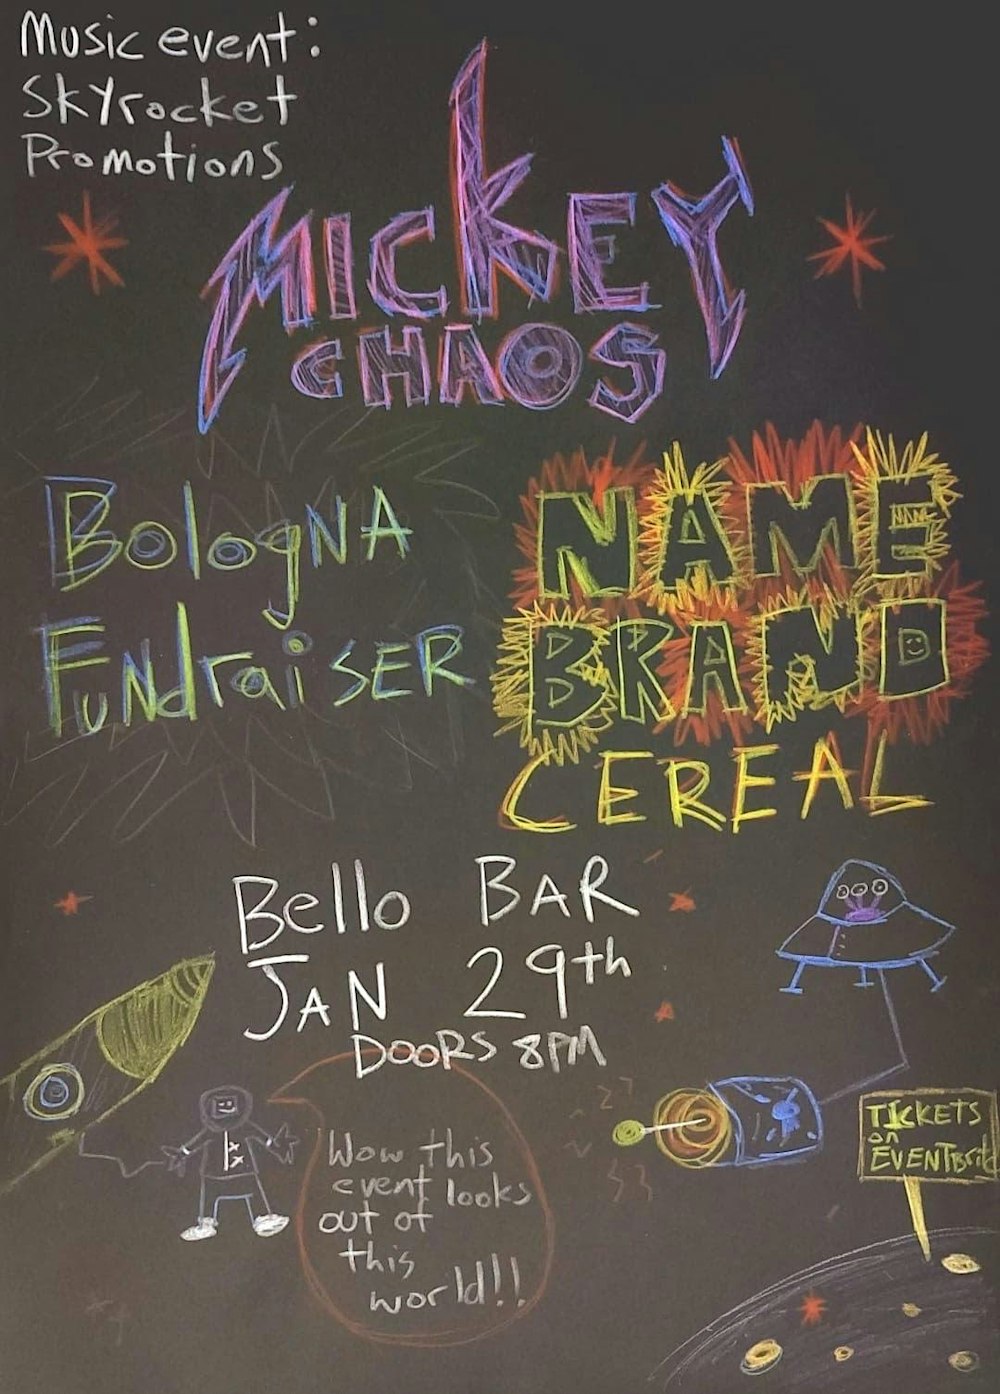 Music event:
Skyrocket
Promotions
MICKEY
CHAOS
BologNA
FuNdraiSER
NAME
NAME
BRAND
CEREAL
Bello BAR
JAN 29th
DOORS 8PM
TICKETS
on
EVENTBrite
Wow this
event looks
out of
this
world!!